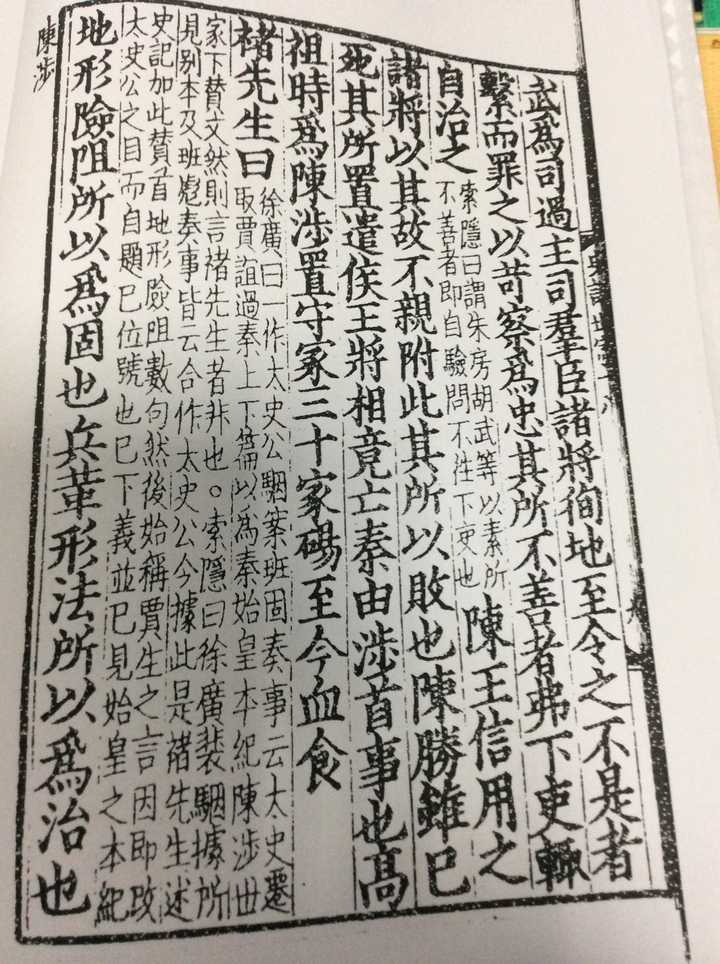 史記世家十八
武爲司過主司羣臣諸將徇地至令之不是者
繫而罪之以苛察爲忠其所不善者弗下吏輒
自治之
索隱曰謂朱房胡武等以素所
不善者即自驗問不往下吏也
陳王信用之
諸將以其故不親附此其所以敗也陳勝雖已
死其所置遣侯王將相竟亡秦由涉首事也高
祖時爲陳涉置守冢三十家碭至今血食
褚先生曰
徐廣曰一作太史公駰案班固奏事云太史遷
取賈誼過秦上下篇以爲秦始皇本紀陳涉世
家下賛文然則言褚先生者非也。索隱曰徐廣裴駰據所
見别本及班彪奏事皆云合作太史公今據此是褚先生述
史記加此賛首地形險阻數句然後始稱賈生之言因即改
太史公之目而自題已位號也已下義並已見始皇之本紀
地形險阻所以爲固也兵革形法所以爲治也
陳涉